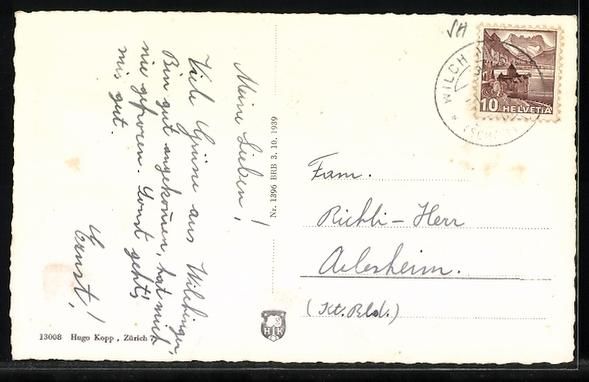 Meine Lieben!
Viele Grüsse aus Wilchingen,
Bin gut angekommen, hat mich
nie gefroren. Sonst geht's
mir gut.
Ernst!
13008 Hugo Kopp, Zürich 7
Nr. 1396 BRB 3. 10. 1939
HK
SH
WILCH
(SCH
10 HELVETIA
Fam.
Richli-Herr
Arlesheim.
(Kt. Bld.)